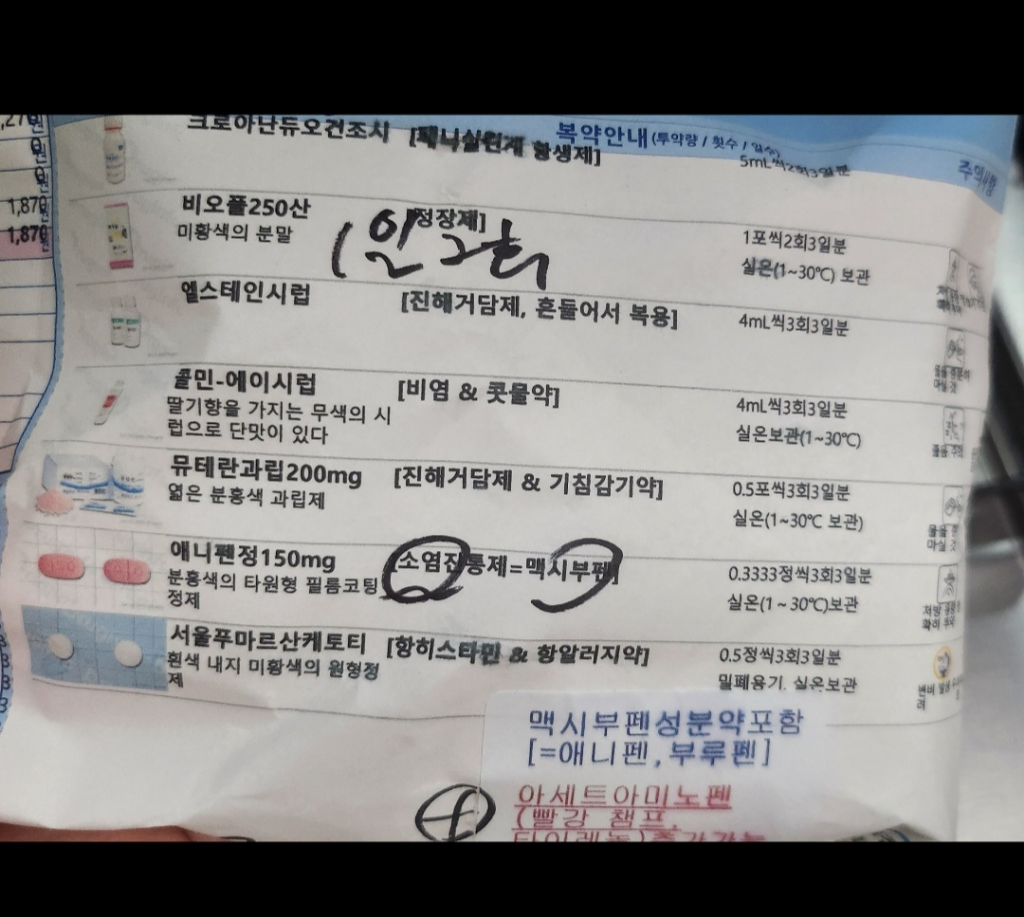 복약안내(투약량 / 횟수 / 일수)
주의사항
크로아난듀오건조시 [페니실린계 항생제]
5mL씩2회3일분
1,870
1,870
비오플250산
[정장제]
미황색의 분말
1일 2회
1포씩2회3일분
실온(1~30℃) 보관
엘스테인시럽 [진해거담제, 흔들어서 복용]
4mL씩3회3일분
콜민-에이시럽 [비염 & 콧물약]
딸기향을 가지는 무색의 시
럽으로 단맛이 있다
4mL씩3회3일분
실온보관(1~30℃)
뮤테란과립200mg [진해거담제 & 기침감기약]
엷은 분홍색 과립제
0.5포씩3회3일분
실온(1~30℃ 보관)
애니펜정150mg [소염진통제=맥시부펜]
분홍색의 타원형 필름코팅
정제
0.3333정씩3회3일분
실온(1~30℃)보관
서울푸마르산케토티 [항히스타민 & 항알러지약]
흰색 내지 미황색의 원형정
제
0.5정씩3회3일분
밀폐용기, 실온보관
맥시부펜성분약포함
[=애니펜,부루펜]
아세트아미노펜
(빨강 챔프,
타이레놀)추가가능